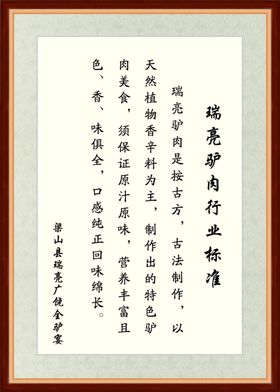 瑞亮驴肉行业标准
瑞亮驴肉是按古方，古法制作，以
天然植物香辛料为主，制作出的特色驴
肉美食，须保证原汁原味，营养丰富且
色、香、味俱全，口感纯正回味绵长。
梁山县瑞亮广饶全驴宴